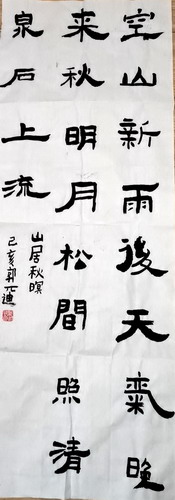 空山新雨後天氣晚
来秋明月松間照清
泉石上流
山居秋暝
己亥郭元迪